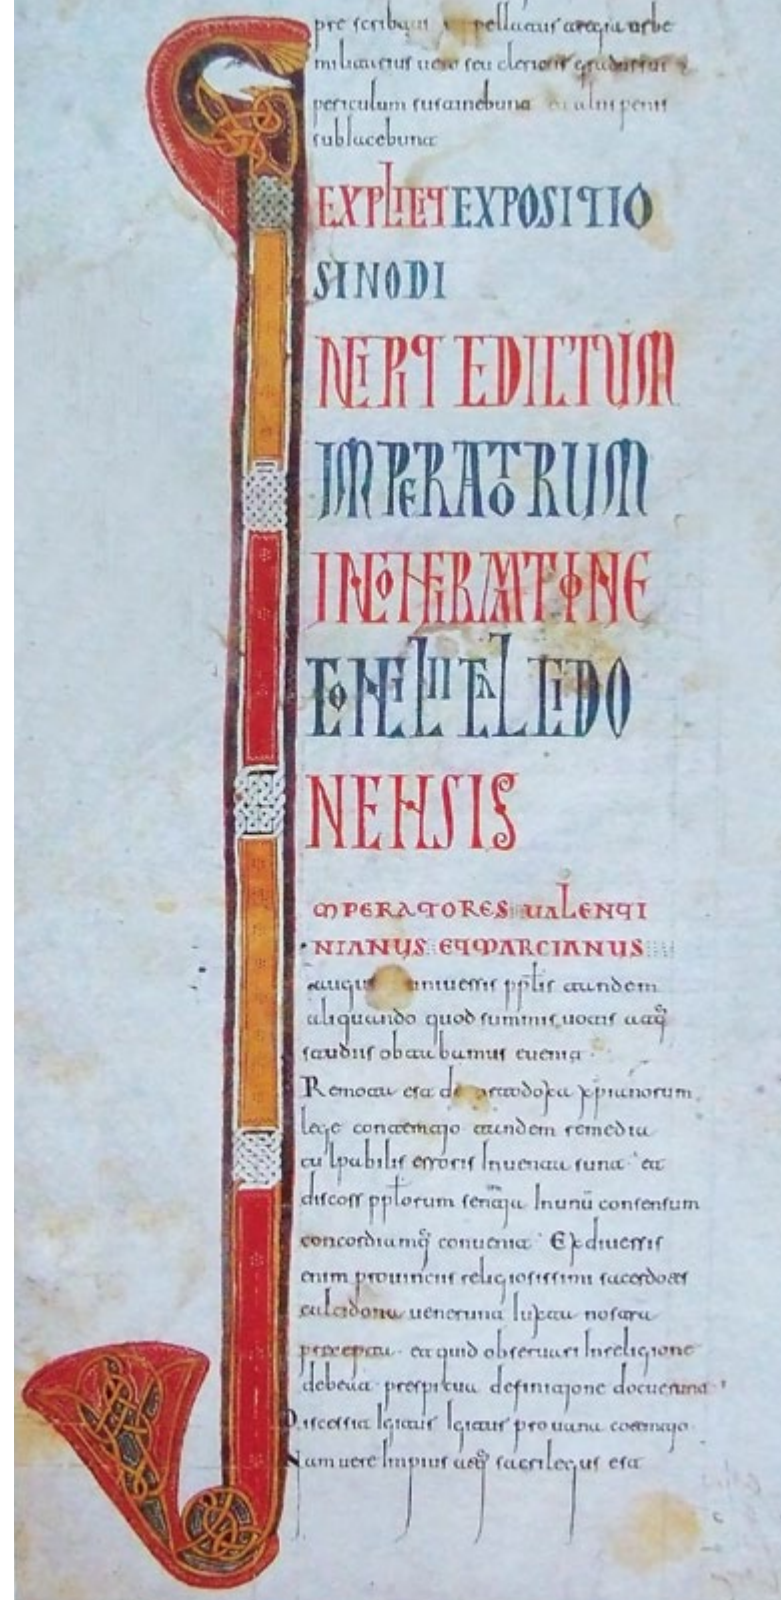 pellatur a regia urbe
seu clericus
periculum sustinebunt aliis penis
subiacebunt
EXPLICIT EXPOSITIO
SINODI
NCIPIT EDICTUM
IMPERATORUM
INCONFIRMATIONE
CONCILII CALCIDO
NENSIS
MPERATORES UALENTI
NIANUS ET MARCIANUS
uniuersis pplis tandem
aliquando quod summis uotis atq
studiis obtabamus euenit
Remota est de ortodoxa xpianorum
lege contemtjo tandem remedia
culpabilis erroris Inuenta sunt et
discors pplorum sententja Inunu consensum
concordiamq conuenit Ex diuersis
enim prouinciis religiosissimi sacerdotes
calcidona uenerunt Iuxta nostra
precepta et quid obseruari Inreligione
debeat prespicua definitjone docuerunt
Discessit Igitur Igitur prouana contemtjo
Nam uere Impius atq sacrilegus est